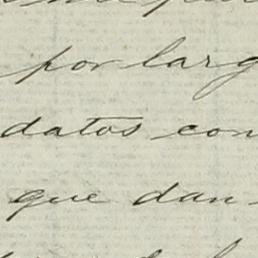 por larg
datos con
que dan